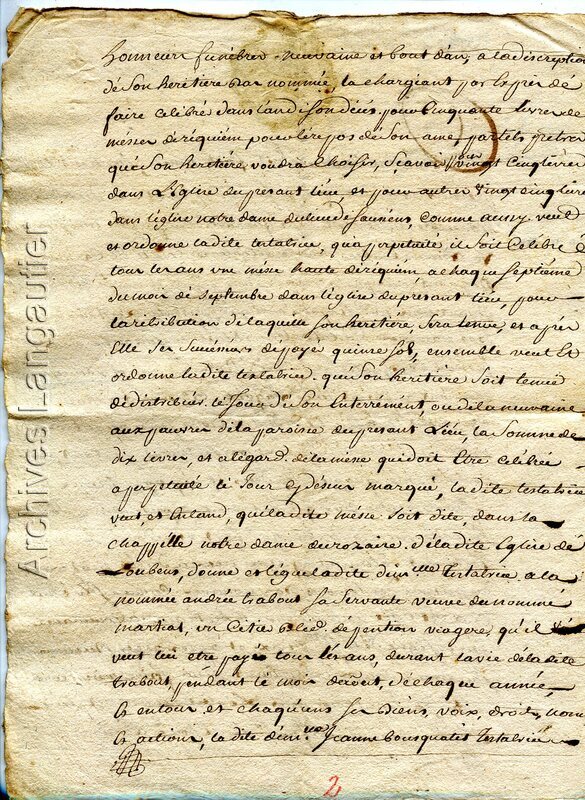 honneurs funébres neuvaine et bout d'an, a la discretion
dé son heritière bas nommée, la chargiant par exprès dé
faire celébré dans l'an dé son décés, pour cinquante livres de
messes dé requiem pour le repos dé son ame, par tels pretres
qué son heritière voudra choisir, sçavoir pour vingt cinq livres
dans L'Eglise du présant lieu, et pour autres vingt cinq livres
dans l'eglise notre dame du lieu de comme aussy veut
et ordonne ladite testatrice, qu'a perpetuité il soit celébré
tous les ans une mésse haute dé requiem, a chaque septiéme
du mois dé septembre dans l'eglise du présant lieu, pour
la rétribution dé laquélle son heritière, sera tenue, et après
Elle ses succésseurs dé payé quinze sols, ensemble veut Et
ordonne ladite testatrice qué son heritière soit tenué
dé distribués le Jour dé son Enterrément, ou dé la neuvaine
aux pauvres dé la paroisse du présant Lieu, la Somme de
dix livres, et a légard dé la mésse qui doit Etre celébrée
a perpetuité le Jour cy déssus marqué, ladite testatrice
veut, et Entand, qué ladite mésse soit dite, dans la
chappélle notre dame du rozaire dé ladite Eglise dé
Loubens, donne et légue ladite dem.lle testatrice a la
nommée andrée trabout sa servante veuve du nommé
martial, un Cétié bled dé pention viagere, qu'il
veut lui etre payés tous les ans, durant la vie dé la dite
trabout, pendant lé mois d'août, dé chaque année,
Et en tous et chaquuns ses biens, voix, droits, noms
Et actions, la dite dem.lle Jeanne Bousquatis testatrice
2
Archives Langautier